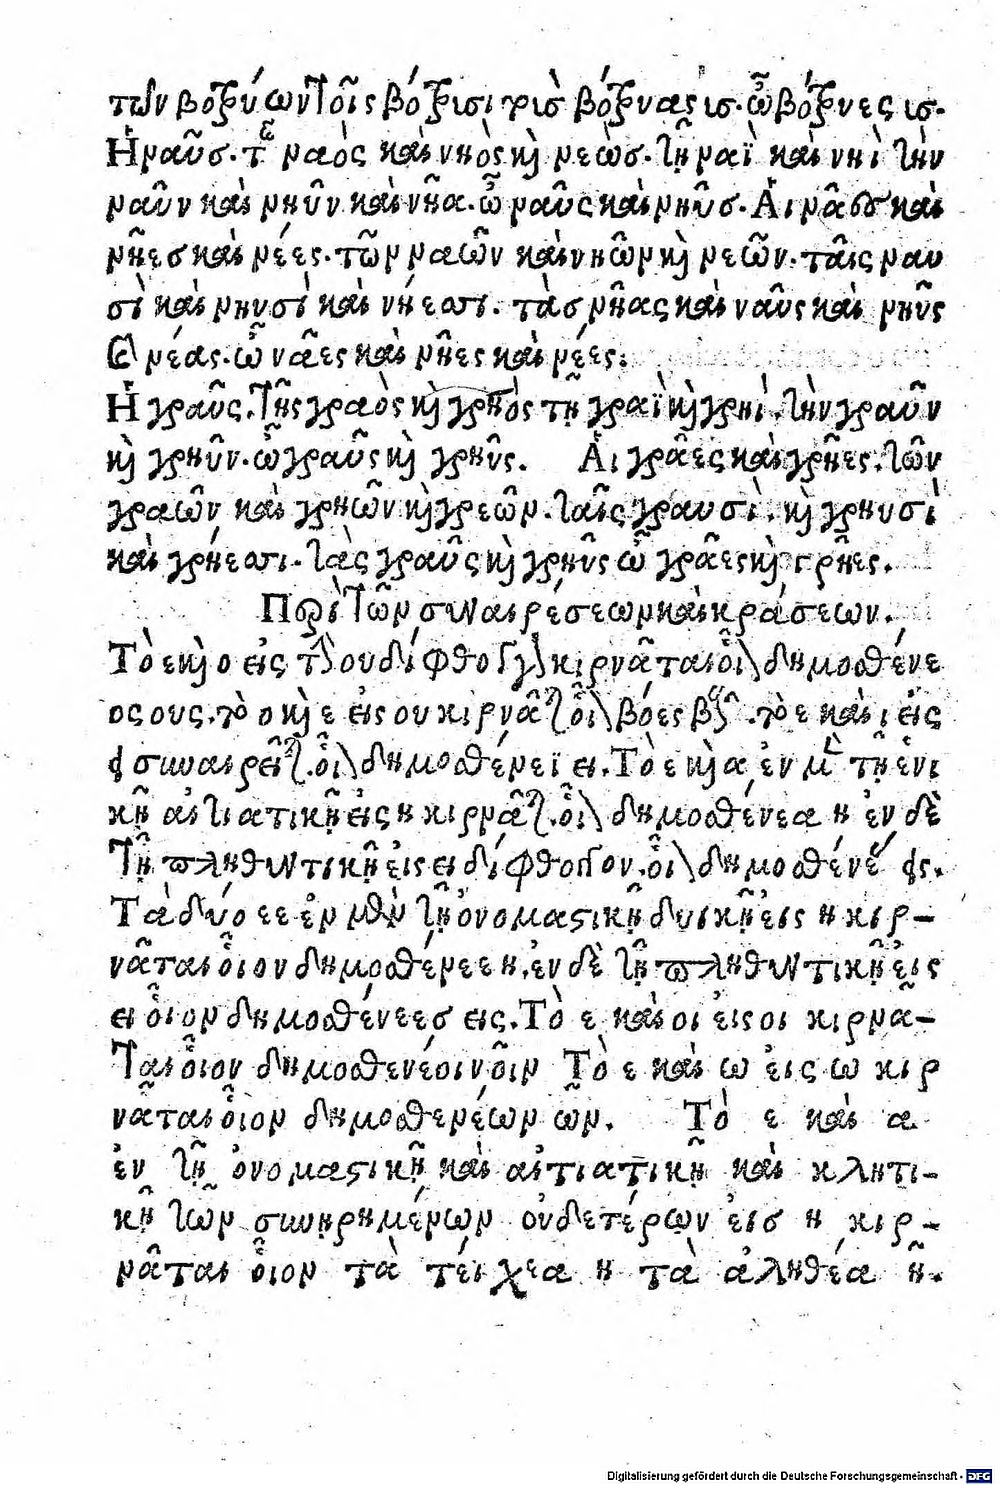 τῶν βοτρύων τοῖς βότρυσι τοὺς βότρυας υς. ὦ βότρυες υς.
Ἡ ναῦσ. τῆς ναὸς καὶ νηὸς καὶ νεὼσ. τῇ ναῒ καὶ νηῒ τὴν
ναῦν καὶ νηῦν καὶ νῆα. ὦ ναῦς καὶ νηῦσ. Ἁι νᾶες καὶ
νῆεσ καὶ νέες. τῶν ναῶν καὶ νηῶν καὶ νεῶν. ταῖς ναυ
σὶ καὶ νηυσὶ καὶ νήεσσι. τὰσ νῆας καὶ ναῦς καὶ νηῦς
καὶ νέας. ὦ νᾶες καὶ νῆες καὶ νέες.
Ἡ γραῦς. τῆς γραὸς καὶ γρηὸς τῇ γραῒ καὶ γρηὶ. τὴν γραῦν
καὶ γρηῦν. ὦ γραῦς καὶ γρηῦς. Ἁι γρᾶες καὶ γρῆες. τῶν
γραῶν καὶ γρηῶν καὶ γρεῶν. ταῖς γραυσὶ. καὶ γρηυσὶ
καὶ γρήεσσι. τὰς γραῦς καὶ γρηῦς ὦ γρᾶες καὶ γρῆες.
Περὶ τῶν συναιρέσεων καὶ κράσεων.
Τὸ ε καὶ ο εἰς τὴν ου δίφθογγον κιρνᾶται οἷον δημοσθένε
ος ους. τὸ ο καὶ ε εἰς ου κιρνᾶται. οἷον βόες βοῦς. τὸ ε καὶ ι εἰς
ει συναιρεῖται. οἷον δημοσθένεϊ ει. Τὸ ε καὶ α ἐν μὲν τῇ ἑνι
κῇ αἰτιατικῇ εἰς η κιρνᾶται. οἷον δημοσθένεα η ἐν δὲ
τῇ πληθυντικῇ εἰς ει δίφθογγον. οἷον δημοσθένεας εις.
Τὰ δύο εε ἐν μὲν τῇ ὀνομαστικῇ δυικῇ εἰς η κιρ-
νᾶται οἷον δημοσθένεε η. ἐν δὲ τῇ πληθυντικῇ εἰς
ει οἷον δημοσθένεεσ εις. Τὸ ε καὶ οι εἰς οι κιρνᾶ-
ται οἷον δημοσθενέοιν οῖν Τὸ ε καὶ ω εἰς ω κιρ
νᾶται οἷον δημοσθενέων ῶν. Τὸ ε καὶ α
ἐν τῇ ὀνομαστικῇ καὶ αἰτιατικῇ καὶ κλητι-
κῇ τῶν συνῃρημένων οὐδετέρων εἰσ η κιρ-
νᾶται οἷον τὰ τείχεα η τὰ ἀληθέα ῆ.
Digitalisierung gefördert durch die Deutsche Forschungsgemeinschaft - DFG